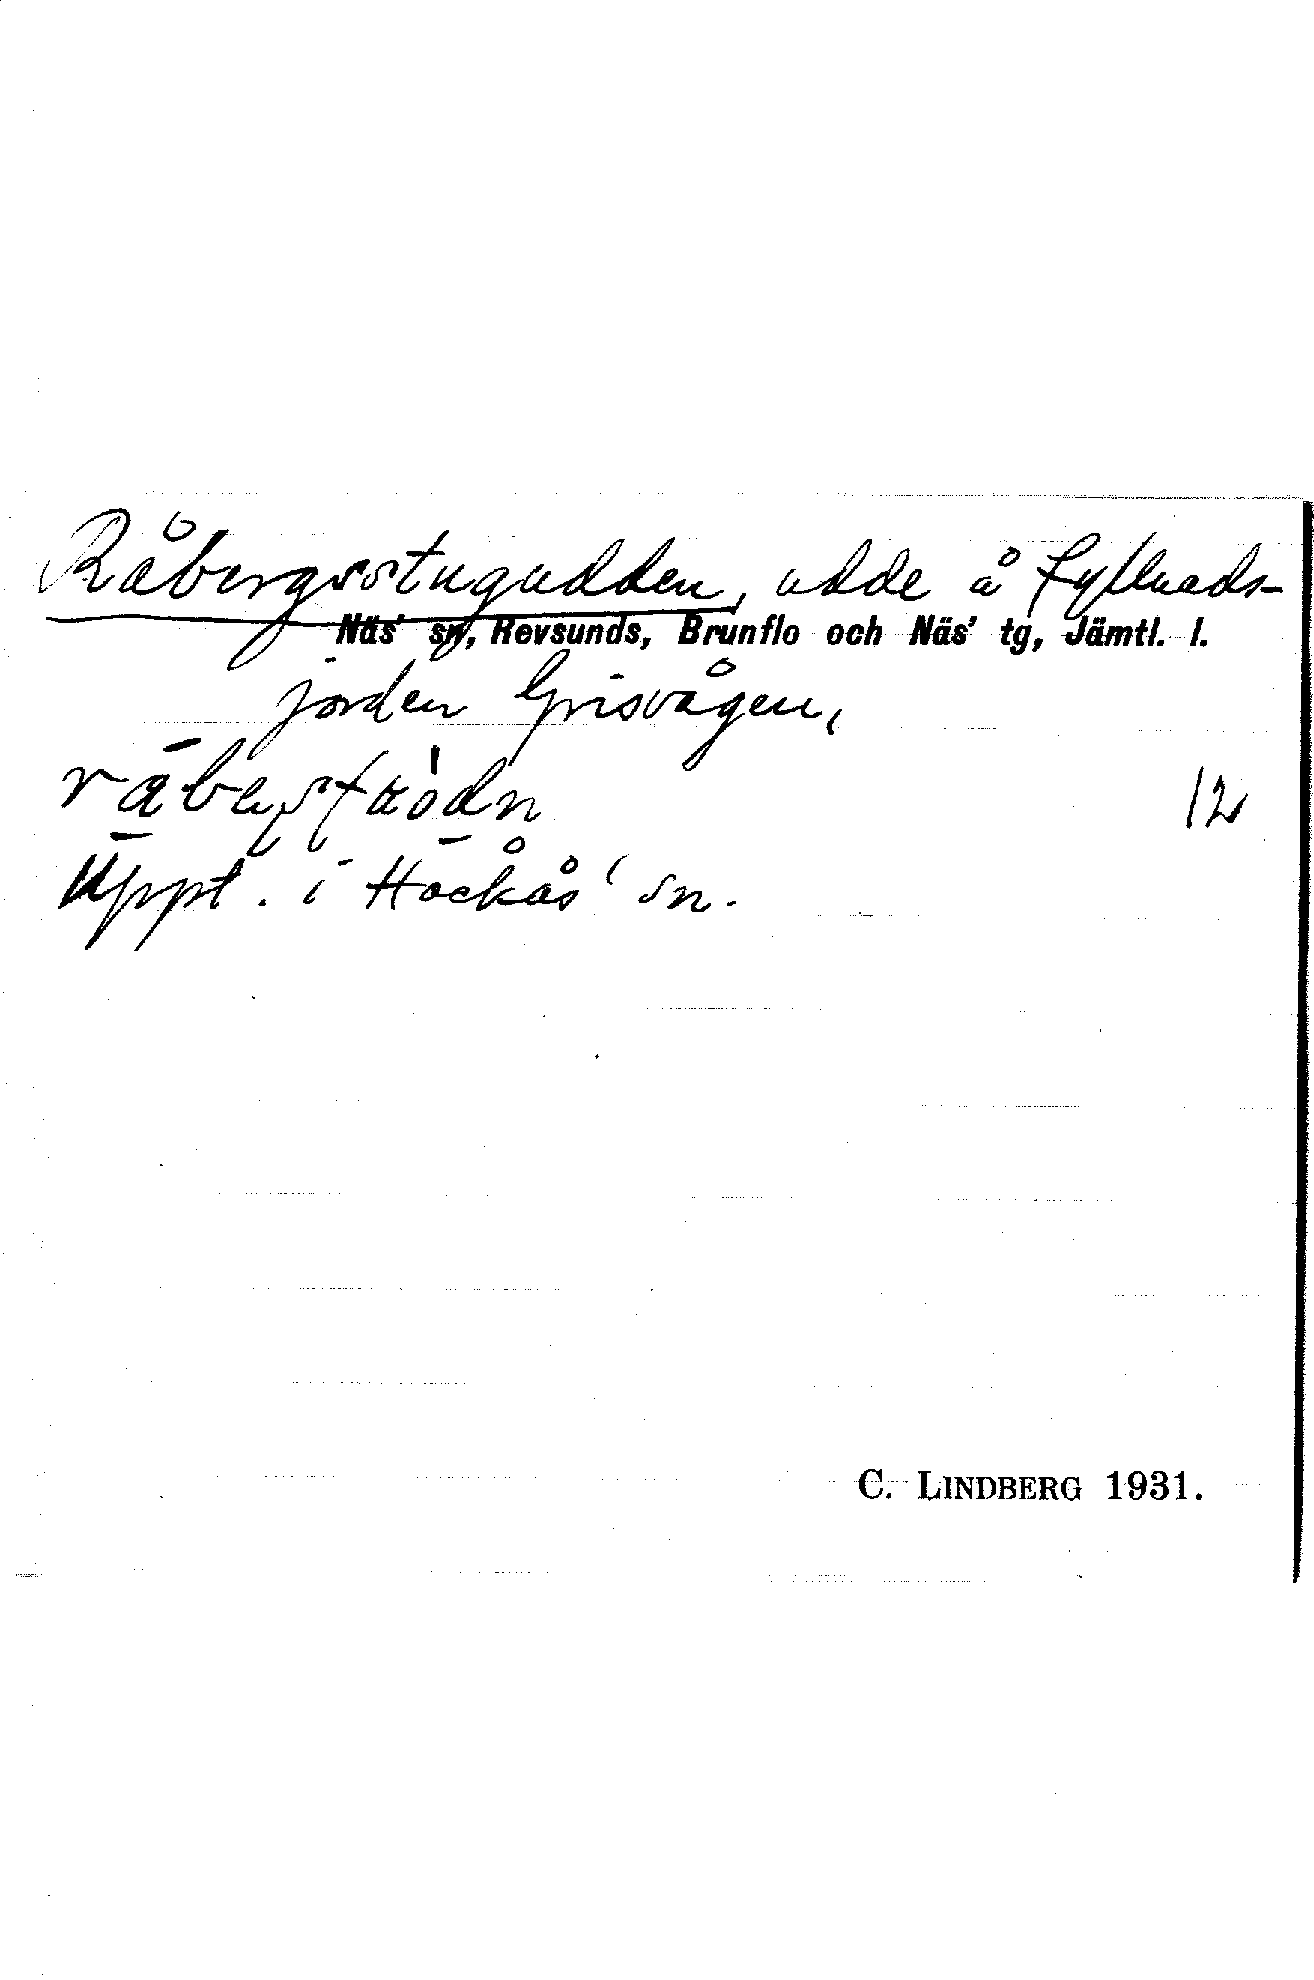 Råbergsstugudden, udde å fyllnads-
Näs' sn, Revsunds, Brunflo och Näs' tg, Jämtl. l.
jorden Grisvågen,
12
Uppt. i Hackås' sn.
C. LINDBERG 1931.